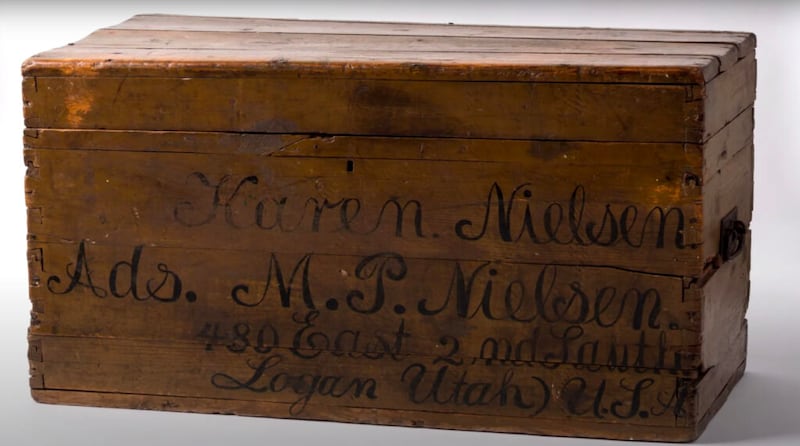 Karen. Nielsen.
Ads. M. P. Nielsen.
480 East 2 nd Sauth
Logan Utah) U.S.A